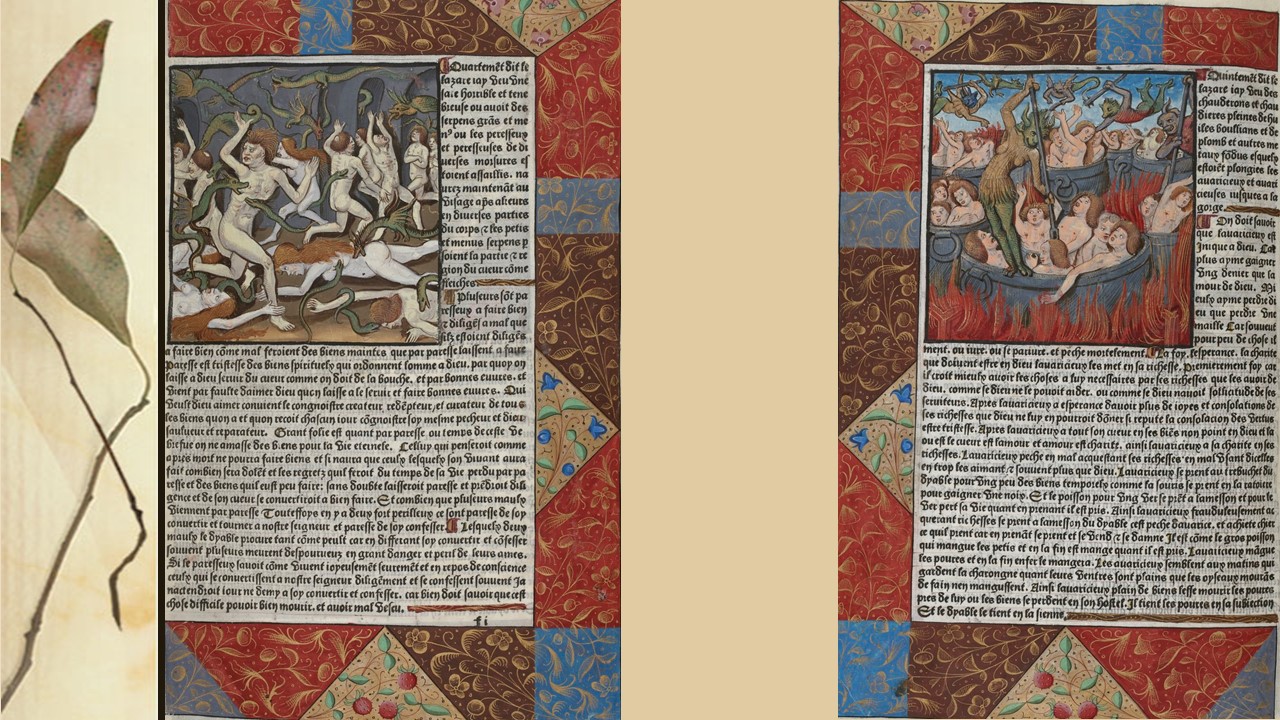 Quartemẽt dit le
lazare iay veu vne
sale horrible et tene
breuse ou auoit des
serpens grãs et me
nꝰ ou les peresseux
et peresseuses de di
uerses morsures es
toient assaillis. na
urez maintenãt au
visage aps ailleurs
en diuerses parties
du corps ⁊ les petis
et menus serpens p
soient la partie ⁊ re
gion du cueur cõme
fleiches
Plusieurs sõt pa
resseux a faire bien
⁊ diligẽs a mal que
silz estoient diligẽs
a faire bien cõme mal feroient des biens maintes que par paresse laissent a faire
Paresse est tristesse des biens spirituelz qui ordonnent lomme a dieu. par quoy on
laisse a dieu seruir du cueur comme on doit de la bouche. et par bonnes euures. et
vient par faulte daimer dieu quen laisse a le seruir et faire bonnes euures. Qui
veult dieu aimer conuient le congnoistre createur redẽpteur, et curateur de tous
les biens quon a et quon recoit chascun iour cõgnoistre soy mesme pecheur et dieu
sauueur et reparateur. Grant folie est quant par paresse ou temps de ceste vie
briefue on ne amasse des biens pour la vie eternele. Celluy qui penseroit comme
apres mort ne pourra faire biens et si naura que ceulx lesquelz son viuant aura
fait combien sera dolẽt et les regretz quil feroit du temps de sa vie perdu par pa
resse et des biens quil eust peu faire: sans doubte laisseroit paresse et prẽdroit dili
gence et de son cueur se conuertiroit a bien faire. Et combien que plusieurs maulx
viennent par paresse Touteffoys en y a deux fort perilleux ce sont paresse de soy
conuertir et tourner a nostre seigneur et paresse de soy confesser. Lesquelz deux
maulx le dyable procure tant cõme peult car en differant soy conuertir et cõfesser
souuent plusieurs meurent despourueux en grant danger et peril de leurs ames.
Si le paresseux sauoit cõme viuent ioyeusemẽt seurement et en repos de conscience
ceulx qui se conuertissent a nostre seigneur diligẽment et se confessent souuent Ja
nactendroit iour ne demy a soy conuertir et confesser. car bien doit sauoir que cest
chose difficile pouoir bien mourir. et auoir mal vescu.
fi
Quintemẽt dit le
lazare iay veu des
chauderons et chau
dieres pleines de hu
iles boullans et de
plomb et autres me
taux fõdus esquelz
estoiẽt plongies les
auaricieux et auari
cieuses iusques a la
gorge
On doit sauoir
que lauaricieux est
Inique a dieu. Car
plus ayme gaigner
vng denier que la
mour de dieu. Mi
eulx ayme perdre di
eu que perdre vne
maille Car souuent
pour peu de chose il
ment. ou iure. ou se pariure. et peche mortelement. La foy. lesperance. la charite
que doiuent estre en dieu lauaricieux les met en sa richesse. Premierement foy car
il croit mieulx auoir les choses a luy necessaires par ses richesses que les auoir de
dieu. comme se dieu ne le pouoit aider. ou comme se dieu nauoit sollicitude de ses
seruiteurs. Apres lauaricieux a esperance dauoir plus de ioyes et consolations de
ses richesses que dieu ne luy en pourroit dõner si repute la consolation des vertus
estre tristesse. Apres lauaricieux a tout son cueur en ses biẽs non point en dieu et la
ou est le cueur est lamour et amour est charite. ainsi lauaricieux a sa charite en ses
richesses. Lauaricieux peche en mal acquestant ses richesses ⁊ en mal vsant dicelles
en trop les aimant ⁊ souuent plus que dieu. Lauaricieux se prent au trebuchet du
dyable pour vng peu des biens temporelz comme la souris se prent en la ratoire
pour gaigner vne noix. Et le poisson pour vng ver se prẽt a lamesson et pour le
ver pert sa vie quant en prenant il est pris. Ainsi lauaricieux frauduleusement ac
querant richesses se prent a lamesson du dyable cest peche dauarice. et achete chier
ce quil prent car en prenãt se prent et se vend ⁊ se damne Jl est cõme le gros poisson
qui mangue les petis et en la fin est mange quant il est pris. Lauaricieux mãgue
les poures et en la fin enfer le mangera. Les auaricieux semblent aux matins qui
gardent la charongne quant leurs ventres sont plains que les oyseaux mourãs
de fain nen mangussent. Ainsi lauaricieux plain de biens lesse mourir les poures
pres de luy ou les biens se perdent en son hostel. Jl tient les poures en sa subiection
Et le dyable le tient en la sienne.